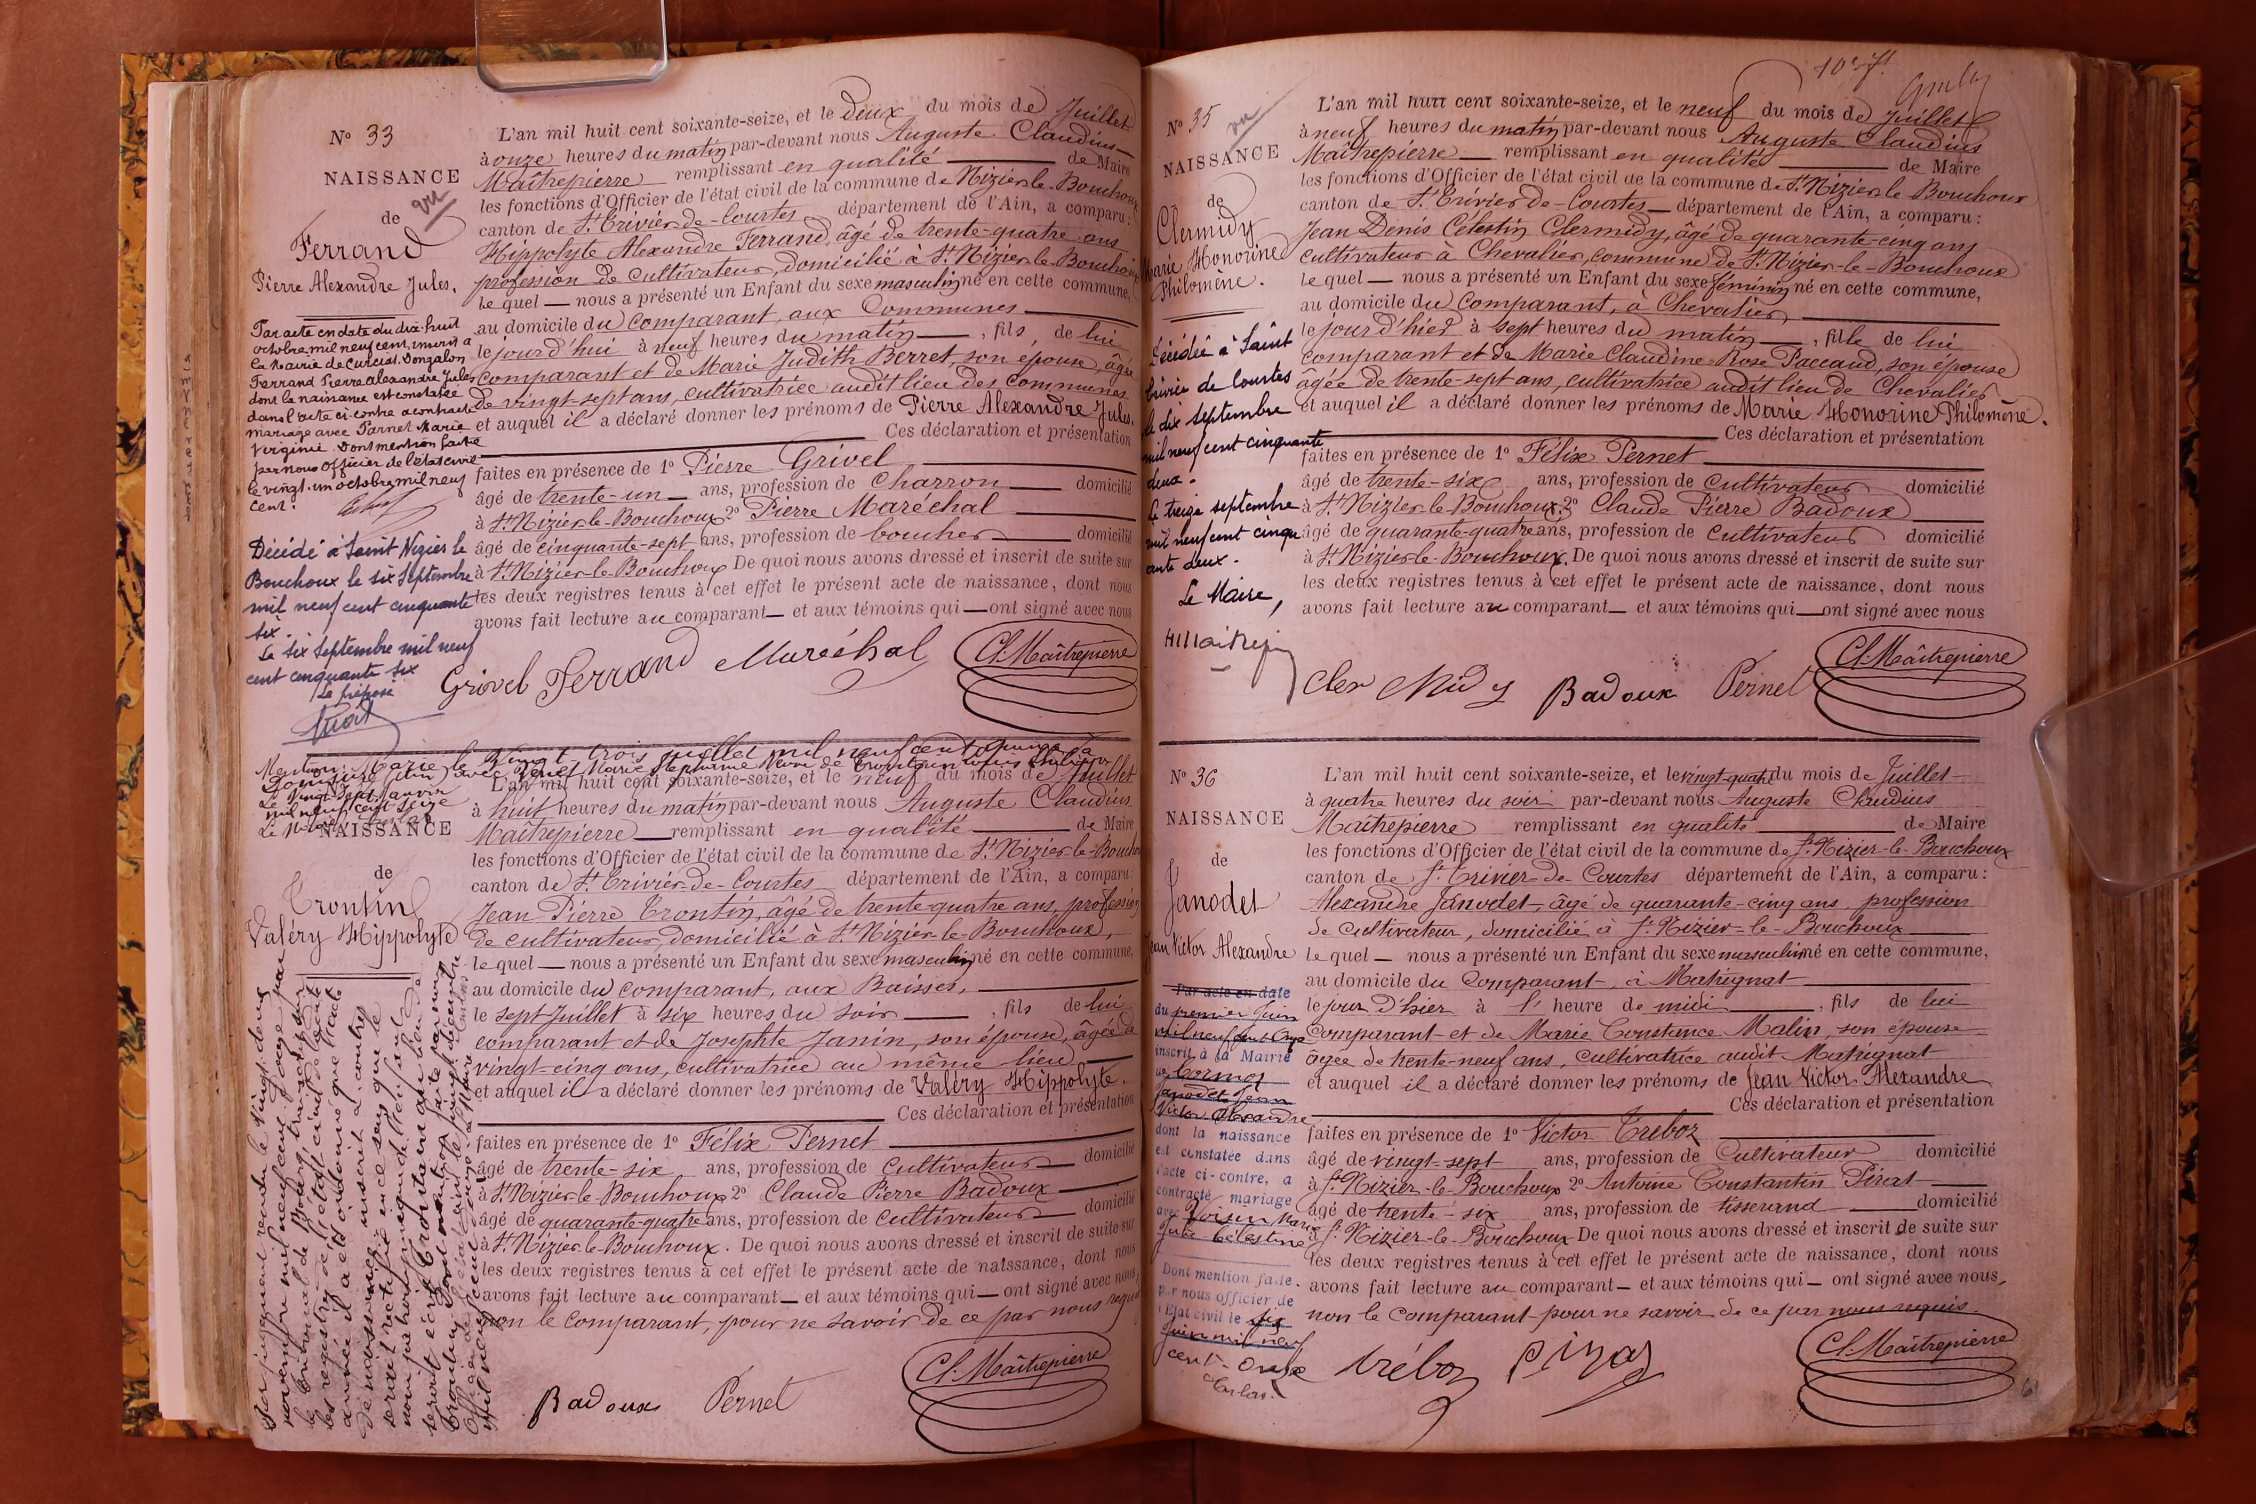 N° 33
NAISSANCE
de
vu
Ferrand
Pierre Alexandre Jules.
Par acte en date du dix-huit
octobre mil neuf cent, inscrit à
la Mairie de Curciat-Dongalon
Ferrand Pierre Alexandre Jules
dont la naissance est constatée
dans l'acte ci-contre a contracté
mariage avec Parnet Marie
Virginie. Dont mention faite
par nous Officier de l'état civil
le vingt-un octobre mil neuf
cent.
Décédé à Saint Nizier le
Bouchoux le six Septembre
mil neuf cent cinquante
six.
Le six Septembre mil neuf
cent cinquante six
Le préposé
L'an mil huit cent soixante-seize, et le deux du mois de Juillet
à onze heures du matin par-devant nous Auguste Claudius
Maîtrepierre remplissant en qualité de Maire
les fonctions d'Officier de l'état civil de la commune de Nizier-le-Bouchoux
canton de St Trivier-de-Courtes département de l'Ain, a comparu :
Hippolyte Alexandre Ferrand, âgé de trente-quatre ans
profession de cultivateur, domicilié à St Nizier-le-Bouchoux
le quel — nous a présenté un Enfant du sexe masculin né en cette commune,
au domicile du comparant, aux Communes
le jourd'hui à neuf heures du matin , fils de lui
comparant et de Marie Judith Berret, son épouse, âgée
de vingt-sept ans, cultivatrice audit lieu des Communes
et auquel il a déclaré donner les prénoms de Pierre Alexandre Jules.
Ces déclaration et présentation
faites en présence de 1° Pierre Grivel
âgé de trente-un — ans, profession de Charron domicilié
à St Nizier-le-Bouchoux 2° Pierre Maréchal
âgé de cinquante-sept ans, profession de boucher domicilié
à St Nizier-le-Bouchoux De quoi nous avons dressé et inscrit de suite sur
les deux registres tenus à cet effet le présent acte de naissance, dont nous
avons fait lecture au comparant — et aux témoins qui — ont signé avec nous
Grivel Ferrand Maréchal Cl. Maîtrepierre
Mention: Marié le vingt-trois juillet mil neuf cent quinze à
NAISSANCE
de
Trontin
Valéry Hippolyte
Par jugement rendu le vingt deux
L'an mil huit cent soixante-seize, et le neuf du mois de Juillet
à huit heures du matin par-devant nous Auguste Claudius
Maîtrepierre remplissant en qualité de Maire
les fonctions d'Officier de l'état civil de la commune de St Nizier-le-Bouchoux
canton de St Trivier-de-Courtes département de l'Ain, a comparu :
Jean-Pierre Trontin, âgé de trente-quatre ans, profession
de cultivateur, domicilié à St Nizier-le-Bouchoux,
le quel — nous a présenté un Enfant du sexe masculin né en cette commune,
au domicile du comparant, aux Baisses,
le sept Juillet à six heures du soir , fils de lui
comparant et de Josephte Janin, son épouse, âgée de
vingt-cinq ans, cultivatrice au même lieu
et auquel il a déclaré donner les prénoms de Valéry Hippolyte.
Ces déclaration et présentation
faites en présence de 1° Félix Pernet
âgé de trente-six ans, profession de cultivateur domicilié
à St Nizier-le-Bouchoux 2° Claude Pierre Badoux
âgé de quarante-quatre ans, profession de cultivateur domicilié
à St Nizier-le-Bouchoux. De quoi nous avons dressé et inscrit de suite sur
les deux registres tenus à cet effet le présent acte de naissance, dont nous
avons fait lecture au comparant — et aux témoins qui — ont signé avec nous,
non le comparant, pour ne savoir de ce par nous requis
Badoux Pernet Cl. Maîtrepierre
N° 35
vu
NAISSANCE
de
Clermidy
Marie Honorine
Philomène.
Décédée à Saint
Trivier de Courtes
le dix septembre
mil neuf cent cinquante
deux.
Le treize septembre
mil neuf cent cinqu
ante deux.
Le Maire,
L'an mil huit cent soixante-seize, et le neuf du mois de Juillet
à neuf heures du matin par-devant nous Auguste Claudius
Maîtrepierre — remplissant en qualité de Maire
les fonctions d'Officier de l'état civil de la commune de St Nizier-le-Bouchoux
canton de St Trivier-de-Courtes — département de l'Ain, a comparu :
Jean Denis Célestin Clermidy, âgé de quarante-cinq ans
cultivateur à Chevalier, commune de St Nizier-le-Bouchoux
le quel — nous a présenté un Enfant du sexe féminin né en cette commune,
au domicile du comparant, à Chevalier
le jour d'hier à sept heures du matin , fille de lui
comparant et de Marie Claudine Rose Paccaud, son épouse
âgée de trente-sept ans, cultivatrice audit lieu de Chevalier
et auquel il a déclaré donner les prénoms de Marie Honorine Philomène.
Ces déclaration et présentation
faites en présence de 1° Félix Pernet
âgé de trente-six ans, profession de cultivateur domicilié
à St Nizier-le-Bouchoux 2° Claude Pierre Badoux
âgé de quarante-quatre ans, profession de cultivateur domicilié
à St Nizier-le-Bouchoux. De quoi nous avons dressé et inscrit de suite sur
les deux registres tenus à cet effet le présent acte de naissance, dont nous
avons fait lecture au comparant — et aux témoins qui — ont signé avec nous
Clermidy Badoux Pernet Cl. Maîtrepierre
N° 36
NAISSANCE
de
Janodet
Jean Victor Alexandre
Par acte en date
du premier Juin
mil neuf cent Onze
inscrit à la Mairie
de Cormoz
Janodet Jean
Victor Alexandre
dont la naissance
est constatée dans
l'acte ci-contre, a
contracté mariage
avec Voisin Marie
Julie Célestine
Dont mention faite
par nous officier de
l'Etat civil le six
Juin mil neuf
cent onze
L'an mil huit cent soixante-seize, et le vingt-quatre du mois de Juillet
à quatre heures du soir par-devant nous Auguste Claudius
Maîtrepierre remplissant en qualité de Maire
les fonctions d'Officier de l'état civil de la commune de St Nizier-le-Bouchoux
canton de St Trivier-de-Courtes département de l'Ain, a comparu :
Alexandre Janodet, âgé de quarante-cinq ans, profession
de cultivateur, domicilié à St Nizier-le-Bouchoux
le quel — nous a présenté un Enfant du sexe masculin né en cette commune,
au domicile du comparant, à Matrignat
le jour d'hier à l' heure de midi , fils de lui
comparant et de Marie Constance Malin, son épouse
âgée de trente-neuf ans, cultivatrice audit Matrignat
et auquel il a déclaré donner les prénoms de Jean Victor Alexandre
Ces déclaration et présentation
faites en présence de 1° Victor Treboz
âgé de vingt-sept ans, profession de Cultivateur domicilié
à St Nizier-le-Bouchoux 2° Antoine Constantin Pirat
âgé de trente-six ans, profession de tisserand domicilié
à St Nizier-le-Bouchoux De quoi nous avons dressé et inscrit de suite sur
les deux registres tenus à cet effet le présent acte de naissance, dont nous
avons fait lecture au comparant — et aux témoins qui — ont signé avec nous,
non le comparant pour ne savoir de ce par nous requis.
tréboz Cl. Maîtrepierre